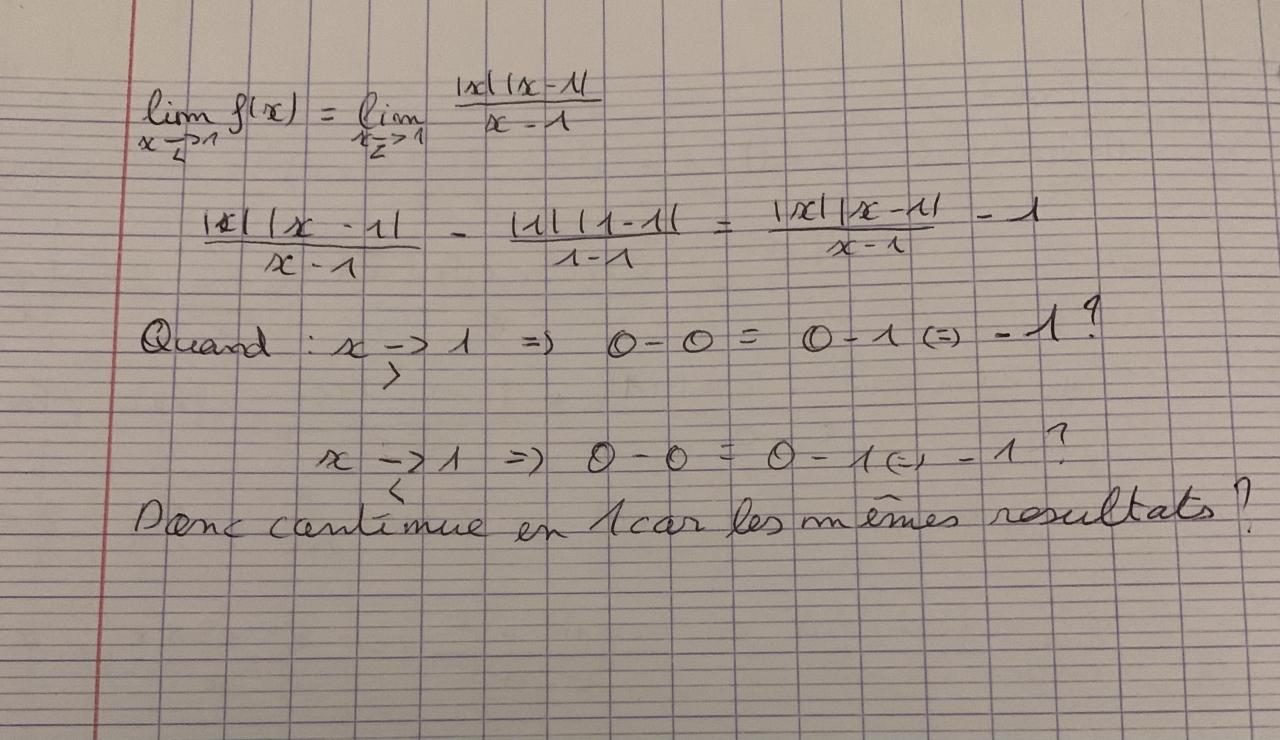 lim x→1 < f(x) = lim x→1 < |x| |x-1| / x-1
|x| |x-1| / x-1 - |1| |1-1| / 1-1 = |x| |x-1| / x-1 - 1
Quand : x → 1 > => 0-0 = 0-1 (=) -1 ?
x → 1 < => 0-0 = 0-1 (=) -1 ?
Donc continue en 1 car les mêmes resultats ?